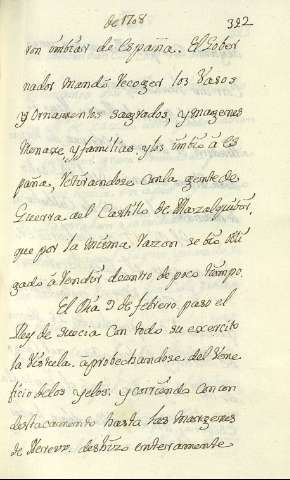 de 1708
322
ron imbiar de España. El Gober
nador mandò recoger los Vasos
y Ornamentos sagrados, ymagenes
Menaxe, y familias y los imbiò à Es
paña, retirandose conla gente de
Guerra al Castillo de Mazalquibir,
que por la misma razon se biò obli
gado à rendir dentro de poco tiempo.
El Dia 9 de febrero paso el
Rey de suecia con todo su exercito
la Vistula, aprobechandose del Vene
ficio delos yelos, y corriendo con un
destacamento hasta las margenes
de deshizo enteramente